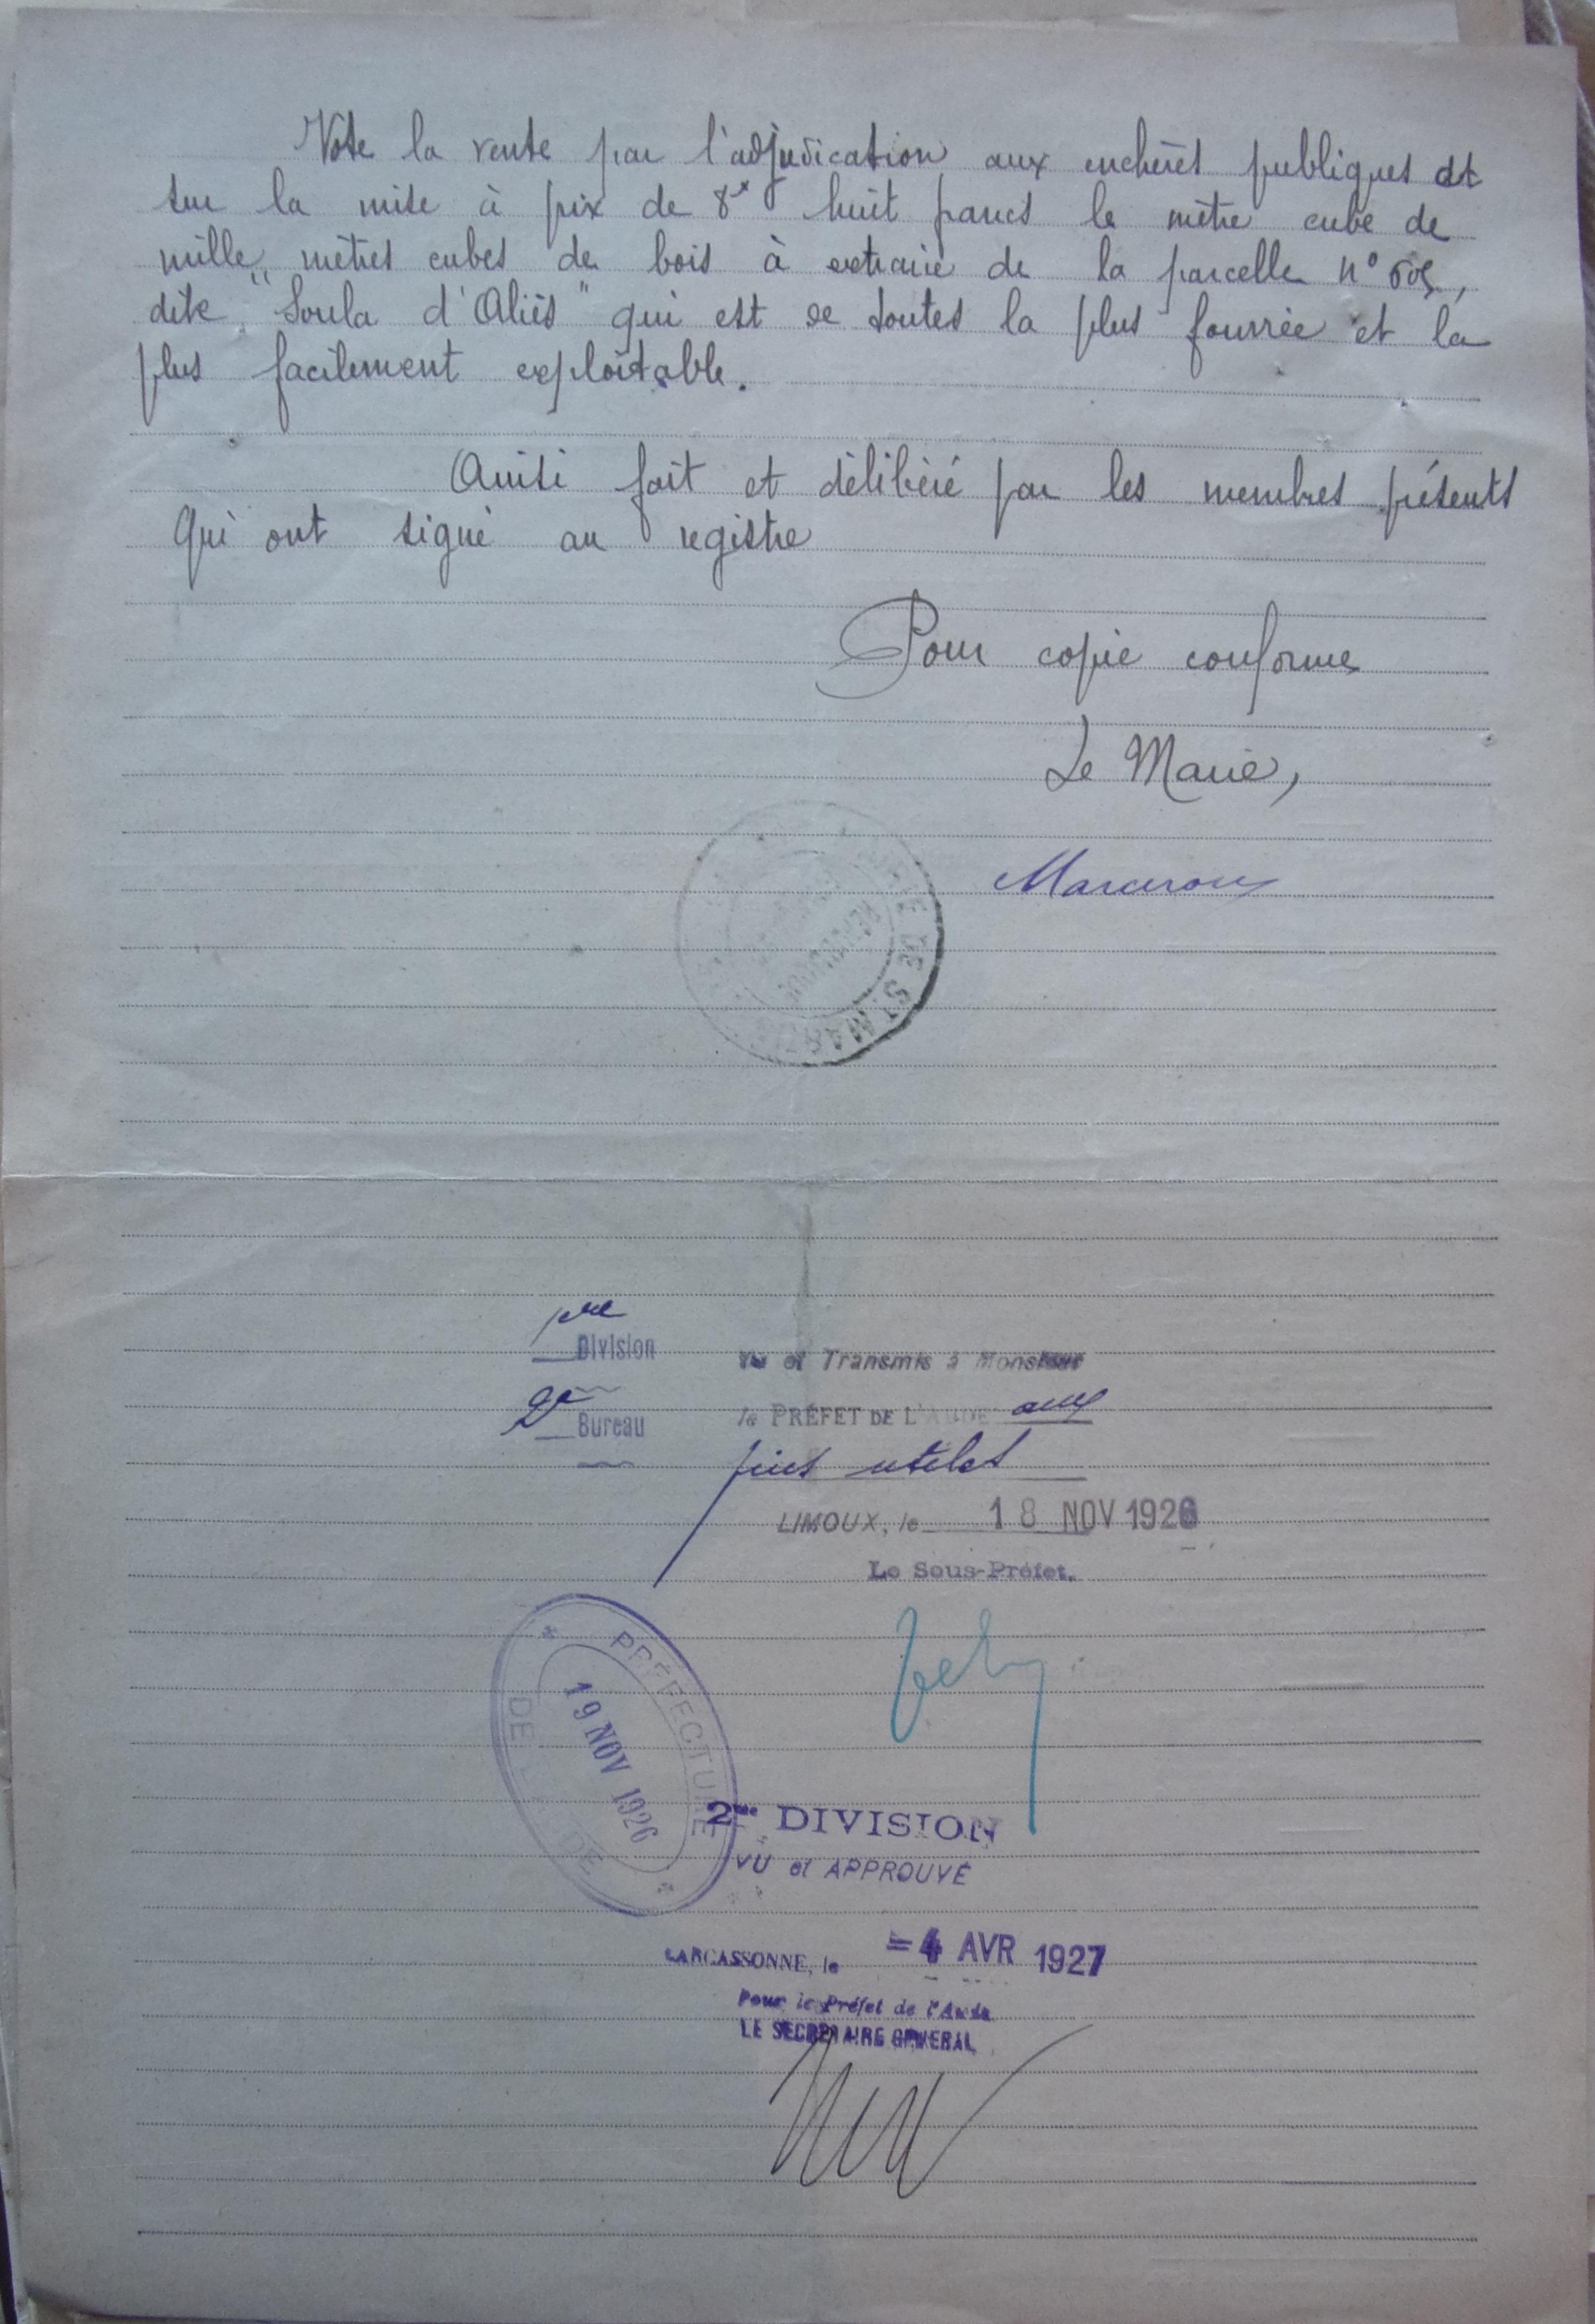 Vote la vente par l'adjudication aux enchères publiques et
sur la mise à prix de 8 huit francs le mètre cube de
mille mètres cubes de bois à extraire de la parcelle n°
dite "Soula d'Aliès" qui est de toutes la plus fourrée et la
plus facilement exploitable.
Ainsi fait et délibéré par les membres présents
Qui ont signé au registre
Pour copie conforme
Le Maire,
DE ST MAR
1ère
Division
Vu et Transmis à Monsieur
2e
Bureau
le PRÉFET DE L'AUDE aux
fins utiles
LIMOUX, le 18 NOV 1926
Le Sous-Préfet.
PRÉFECTURE
19 NOV 1926
DE L'AUDE
2me DIVISION
VU et APPROUVÉ
CARCASSONNE, le =4 AVR 1927
Pour le Préfet de l'Aude
LE SECRÉTAIRE GÉNÉRAL